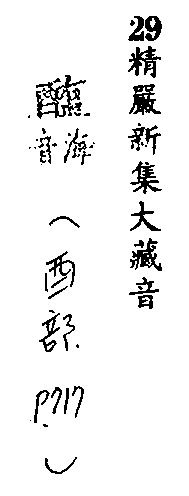 29精嚴新集大藏音
海音（酉部P.717）